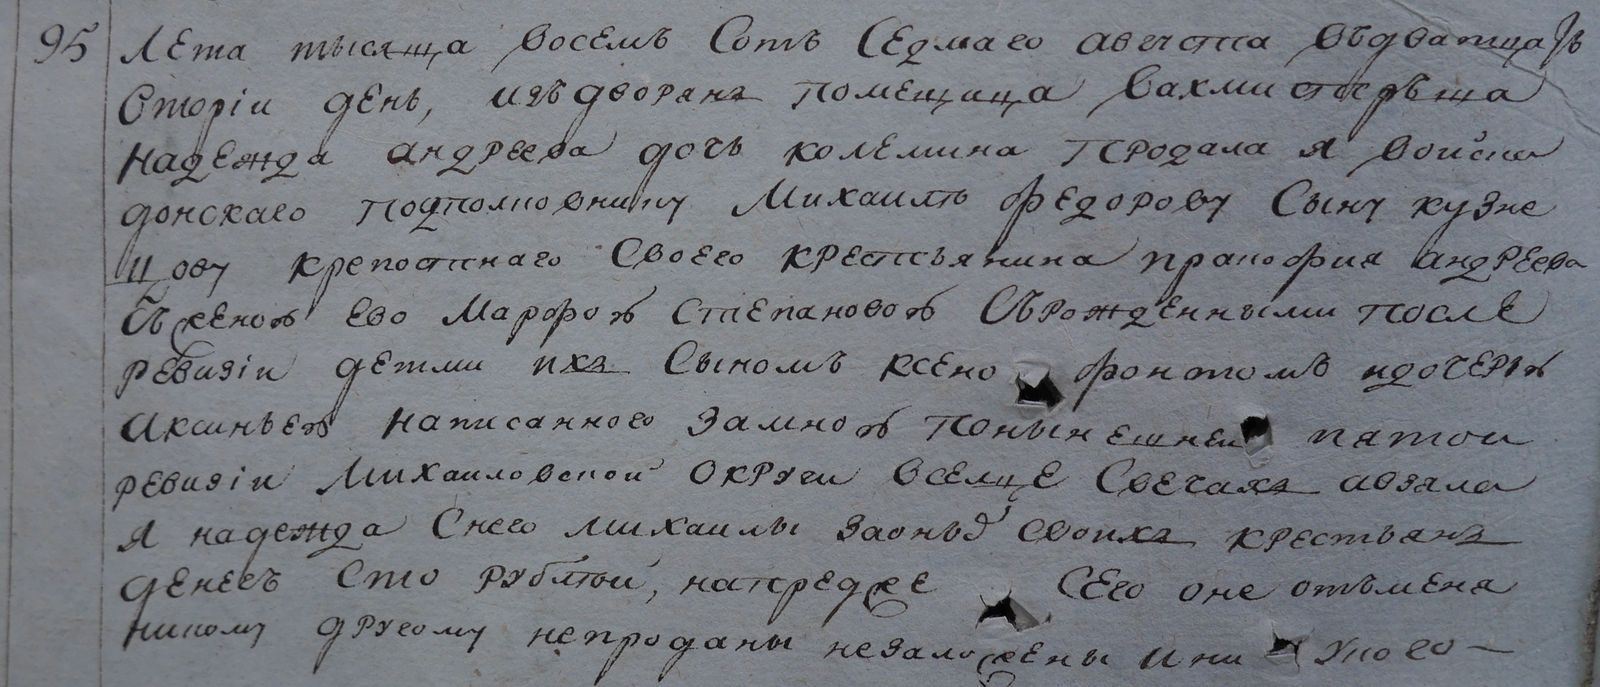 95 Лета тысяща восемъ Сотъ Седмаго августа въдватцать
вторiи день, изъ дворянъ помещица вахмистръша
надежда андреева дочь колемина продала я воиска
донскаго подполковнику Михаилѣ федорову Сыну кузне
цову крепостнаго Своего крестьянина пракофия андреева
Съженой ево Марфой Степановой Сърожденными после
ревизiи детми ихъ Сыномъ ксено фонтомъ идочерью
аксиньей написанного замной понынешней пятой
ревизiи Михаиловской округи вселце Свечахъ авзяла
я надежда Снего михаилы заоныхъ своихъ крестьянъ
денегъ Сто рублей, напредже Сего оне отъменя
никому другому непроданы незаложены и ни укого